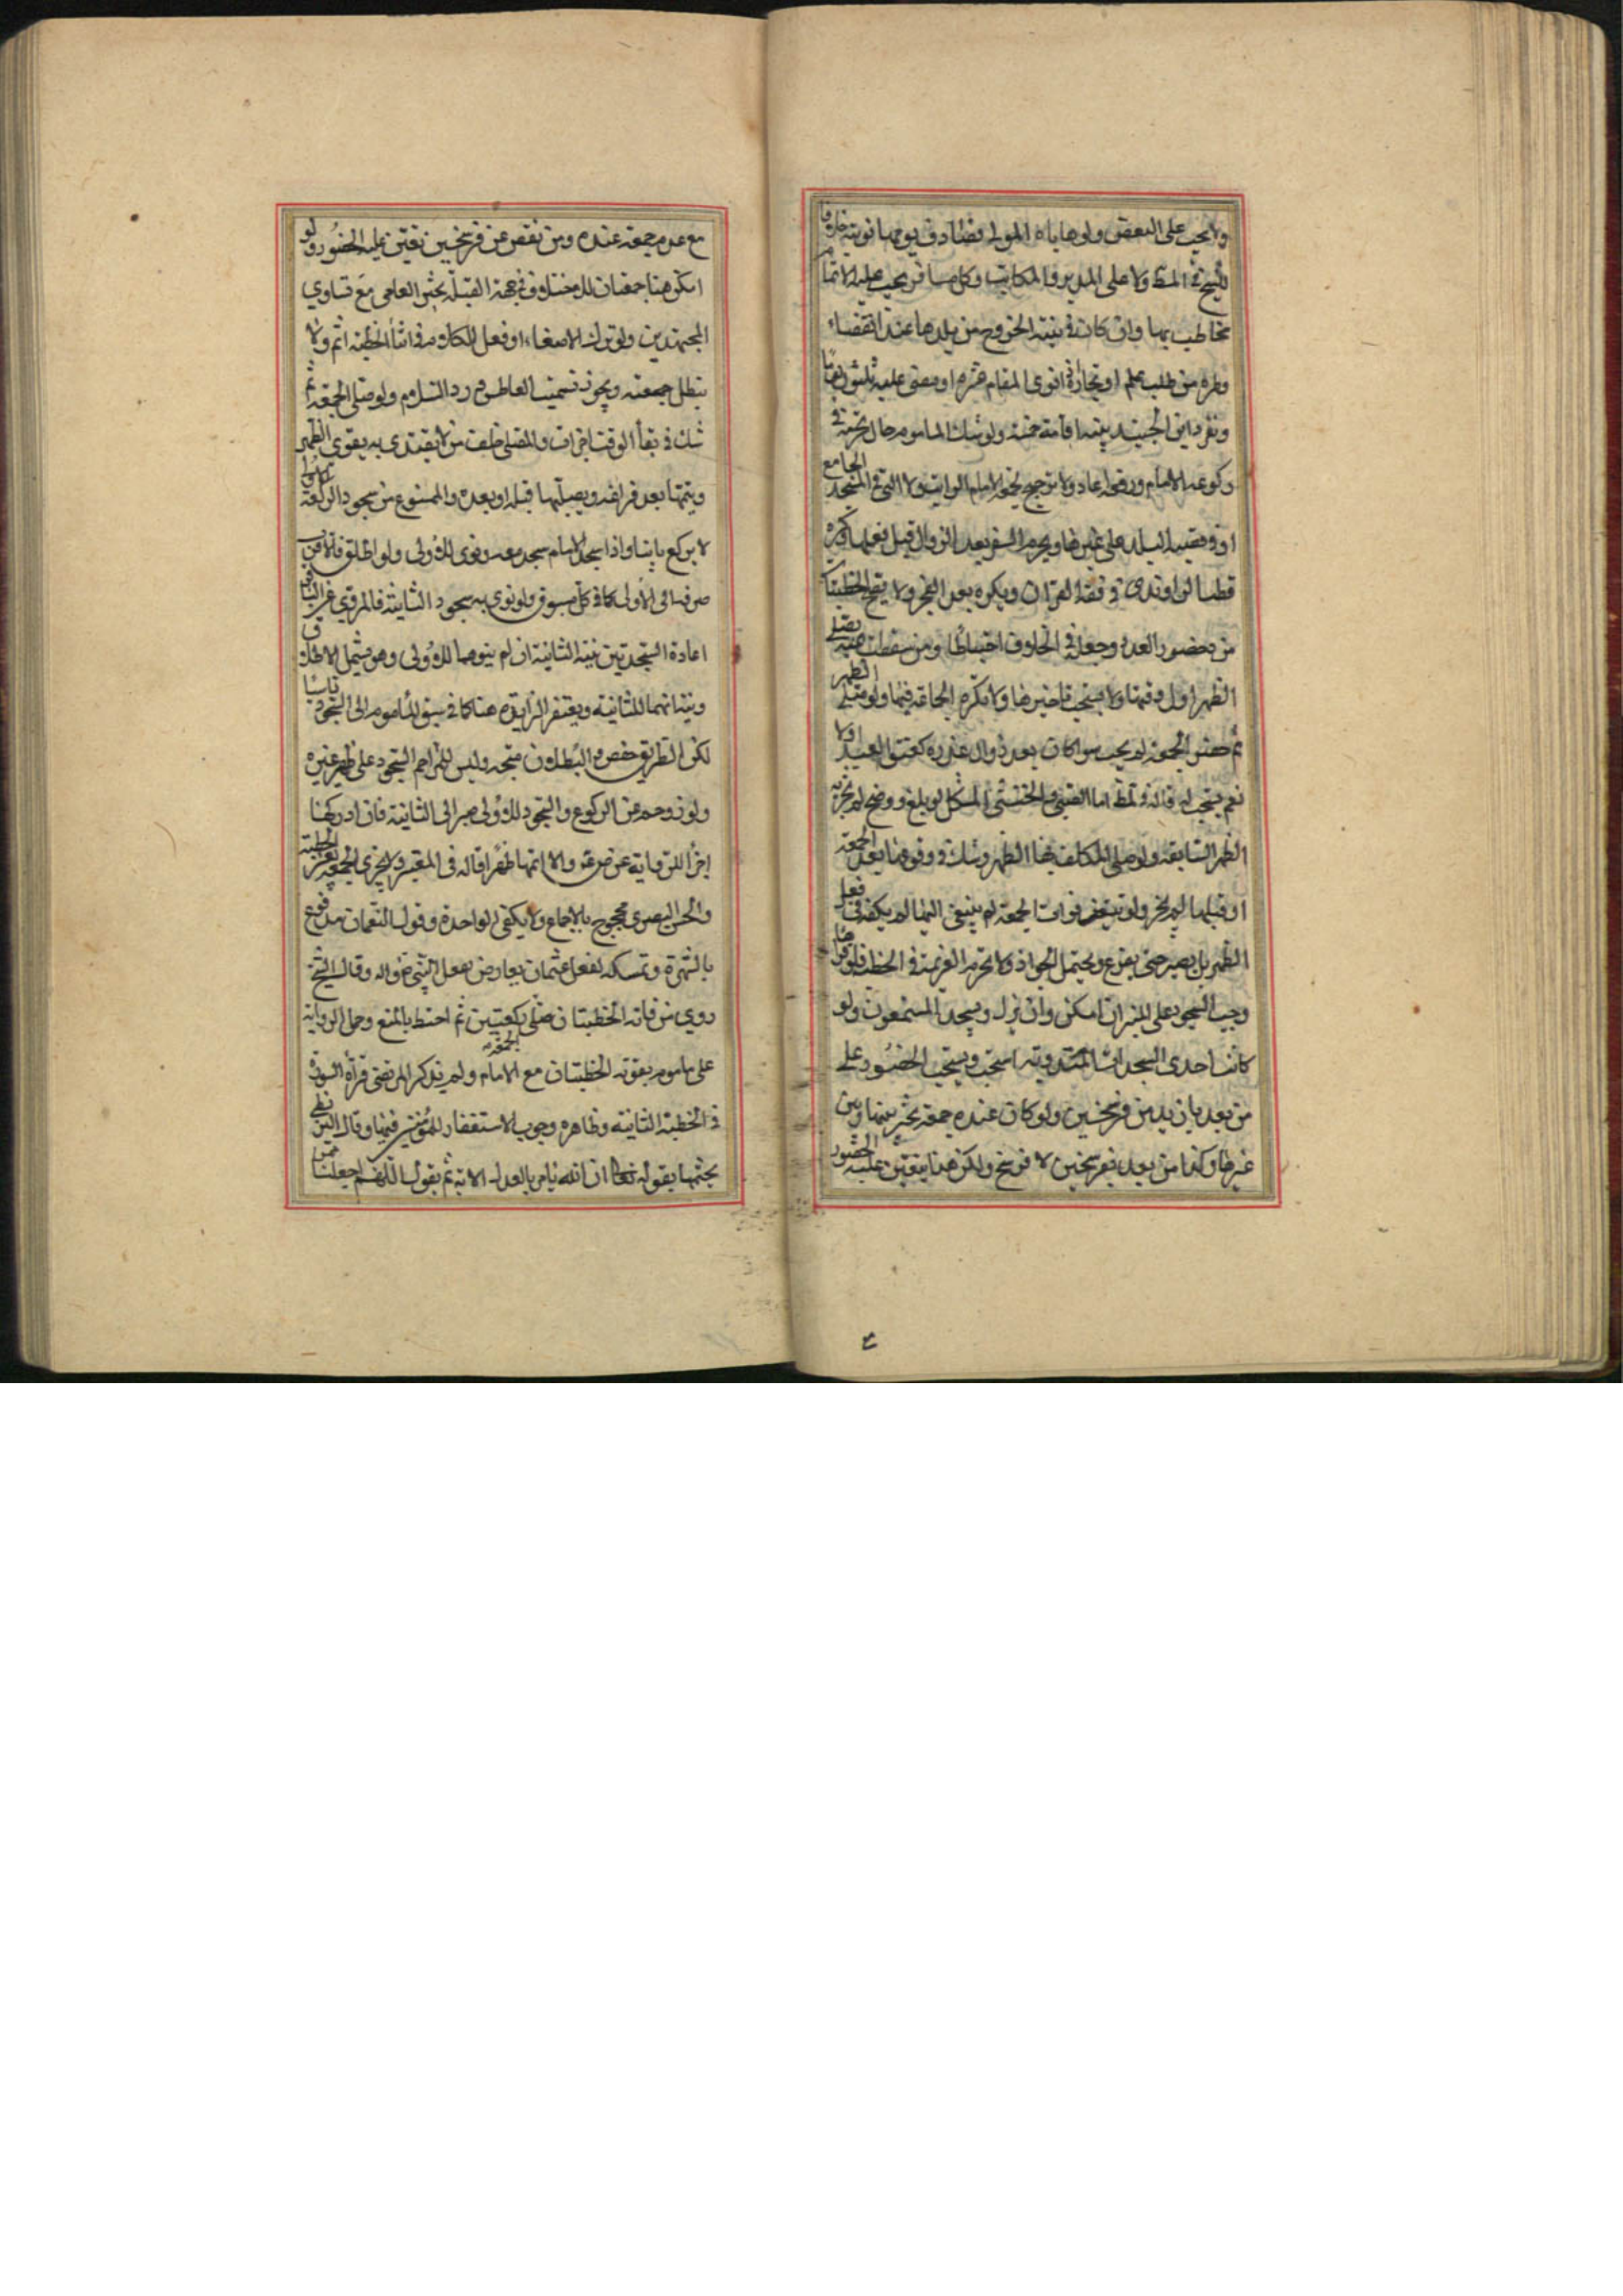 ولا يجب على البعض ولو هاياه المولى فصادف يومها نوبته خلافا
للشيخ في المبسوط ولا على المدبر والمكاتب وكل مسافر يجب عليه الاتمام
يخاطب بها وان كان في نيته الخروج من بلدها عند انقضاء
وطره من طلب علم او تجارة نوى المقام عشرة او مضى عليه ثلثون يوما
ونفر داين الجنيد بنية اقامة خمسة ولو شك الماموم حال
ركوعه الامام ورفعه اعاد ولا ترجيح بجمعة الامام الراتب ولا التي في المسجد الجامع
او في قصبة البلد على غيرها ويحرم السفر بعد الزوال قبل فعلها وكرهه
قطب الراوندي في فقه القران ويكره بعد الفجر ولا يقع الخطبتان
من بحضور العدد وجعله في الخلاف احتياطا ومن سقطت عنه يصلي
الظهر اول وقتها ولا يستحب تاخيرها ولا تكره الجماعة فيها ولو صلى الظهر
ثم حضر الجمعة لم يجب سوا كان بعد زوال عذره كعتق العبد اولا
نعم يستحب له قاله في المبسوط اما الصبي والخنثى المشكل لو بلغ ووضح لم تجزه
الظهر السابقة ولو صلى المكلف بها الظهر وشك في وقوعها بعد الجمعة
او قبلها لم يجز ولو تيقن فوات الجمعة لم ينبغي اليها لم يكف في فعل
الظهر بل يصبر حتى يفرغ ويحتمل الجواز ولا تحرم العزيمة في الخطبة فلو قراها
وجب السجود على المنبر ان امكن وان نزل وسجد المستمعون ولو
كانت احدى السجدات المندوبة استحب ويستحب الحضور على
من بعد بازيد من فرسخين ولو كان عنده جمعة تخير بينها وبين
غيرها وكذا من بعد بفرسخين لا فرسخ ولكن هنا يتعين عليه الحضور
مع عدم جمعة عنده ومن نقص عن فرسخين تعين عليه الحضور ولو
امكن هنا جمعتان للاختلاف في جهة القبلة تخير العامي مع تساوي
المجتهدين ولو ترك الاصغاء او فعل الكلام في اثنا الخطبة اثم ولا
يبطل جمعته ويجوز تسميت العاطس ورد السلام ولو صلى الجمعة ثم
شك في بقأ الوقت اجزات والمصلي خلف من لا يقتدى به ينوى الظهر
ويتمها بعد فراغه ويصليها قبله او بعده والممنوع من سجود الركعة
لا يركع ثانيا واذا سجد الامام سجد معه ونوى للاولى ولو اطلق فالاقرب
صرفه الى الاولى كما في كل مسبوق ولو نوى به سجود الثانية فالمروي
اعادة السجدتين بنية الثانية ان لم ينوهما للاولى وهو يشمل الاطلاق
ونيتهما للثانية ويغتفر الزايدة هنا كما في سبق المأموم الى السجود ناسيا
لكن الطريق حفص والبطلان متجه وليس للمزاحم السجود على ظهر غيره
ولو زوحم عن الركوع والسجود للاولى صبر الى الثانية فان ادركها
اجزا للرواية عن ضرغه والا اتمها ظهرا قاله في المعتبر ولا يجزى الجمعة بغير الخطبة
والحسن البصري محجوج بالاجماع ولا يكفي الواحدة وقول النعمان مدفوع
بالشهرة وتمسكه بفعل عثمان يعارض بفعل النبي ص واله وقال الشيخ
روي من فاته الخطبتان صلى ركعتين ثم احتط بالمنع وحمل الرواية
على ماموم يفوته الخطبتان مع الامام ولم يذكر المرتضى قرأة السورة
في الخطبة الثانية وظاهره وجوب الاستغفار للمؤمنين فيها وقال
يختمها بقوله تعالى ان الله يامر بالعدل الاية ثم يقول اللهم اجعلنا ممن